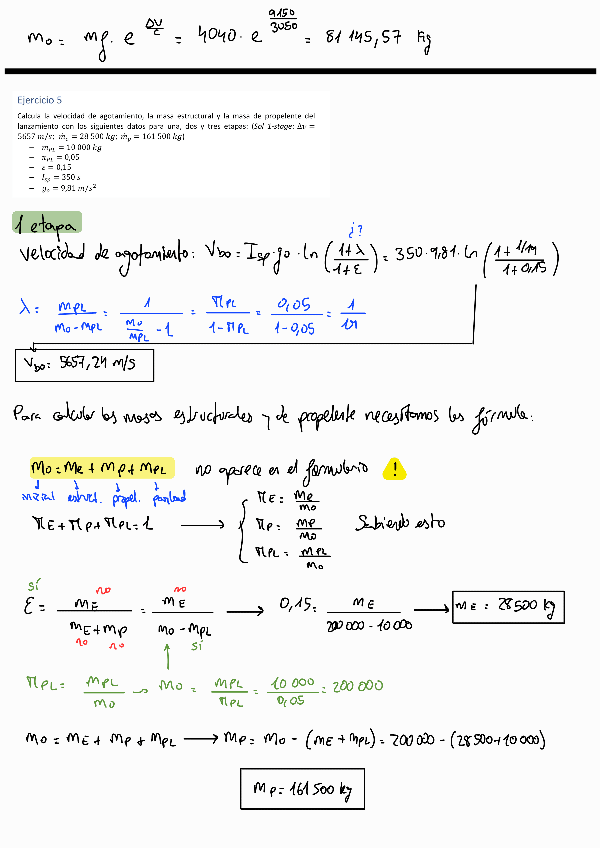 m₀ = mƒ · e^(ΔV/c) = 4040 · e^(9150/3050) = 81 145,57 Kg
Ejercicio 5
Calcula la velocidad de agotamiento, la masa estructural y la masa de propelente del
lanzamiento con los siguientes datos para una, dos y tres etapas: (Sol 1-stage: Δv =
5657 m/s; m̄ₑ = 28 500 kg; m̄ₚ = 161 500 kg)
− m_PL = 10 000 kg
− π_PL = 0,05
− ε = 0,15
− I_sp = 350 s
− g₀ = 9,81 m/s²
1 etapa
¿?
Velocidad de agotamiento: V_bo = I_sp · g₀ · ln ((1+λ)/(1+ε)) = 350 · 9,81 · ln ((1 + 1/19)/(1 + 0,15))
λ = m_PL/(m₀ - m_PL) = 1/(m₀/m_PL - 1) = π_PL/(1 - π_PL) = 0,05/(1 - 0,05) = 1/19
V_bo = 5657,24 m/s
Para calcular las masas estructurales y de propelente necesitamos las fórmula:
m₀ = m_e + m_p + m_PL no aparece en el formulario !
inicial estruct. propel. payload
π_E + π_P + π_PL = 1 → { π_E = m_e/m₀
π_P = m_P/m₀ Sabiendo esto
π_PL = m_PL/m₀
sí no no
ε = m_E/(m_E + m_P) = m_E/(m₀ - m_PL) → 0,15 = m_E/(200 000 - 10 000) → m_E = 28 500 kg
no no sí
π_PL = m_PL/m₀ → m₀ = m_PL/π_PL = 10 000/0,05 = 200 000
m₀ = m_E + m_P + m_PL → m_P = m₀ - (m_E + m_PL) = 200 000 - (28 500 + 10 000)
m_P = 161 500 kg